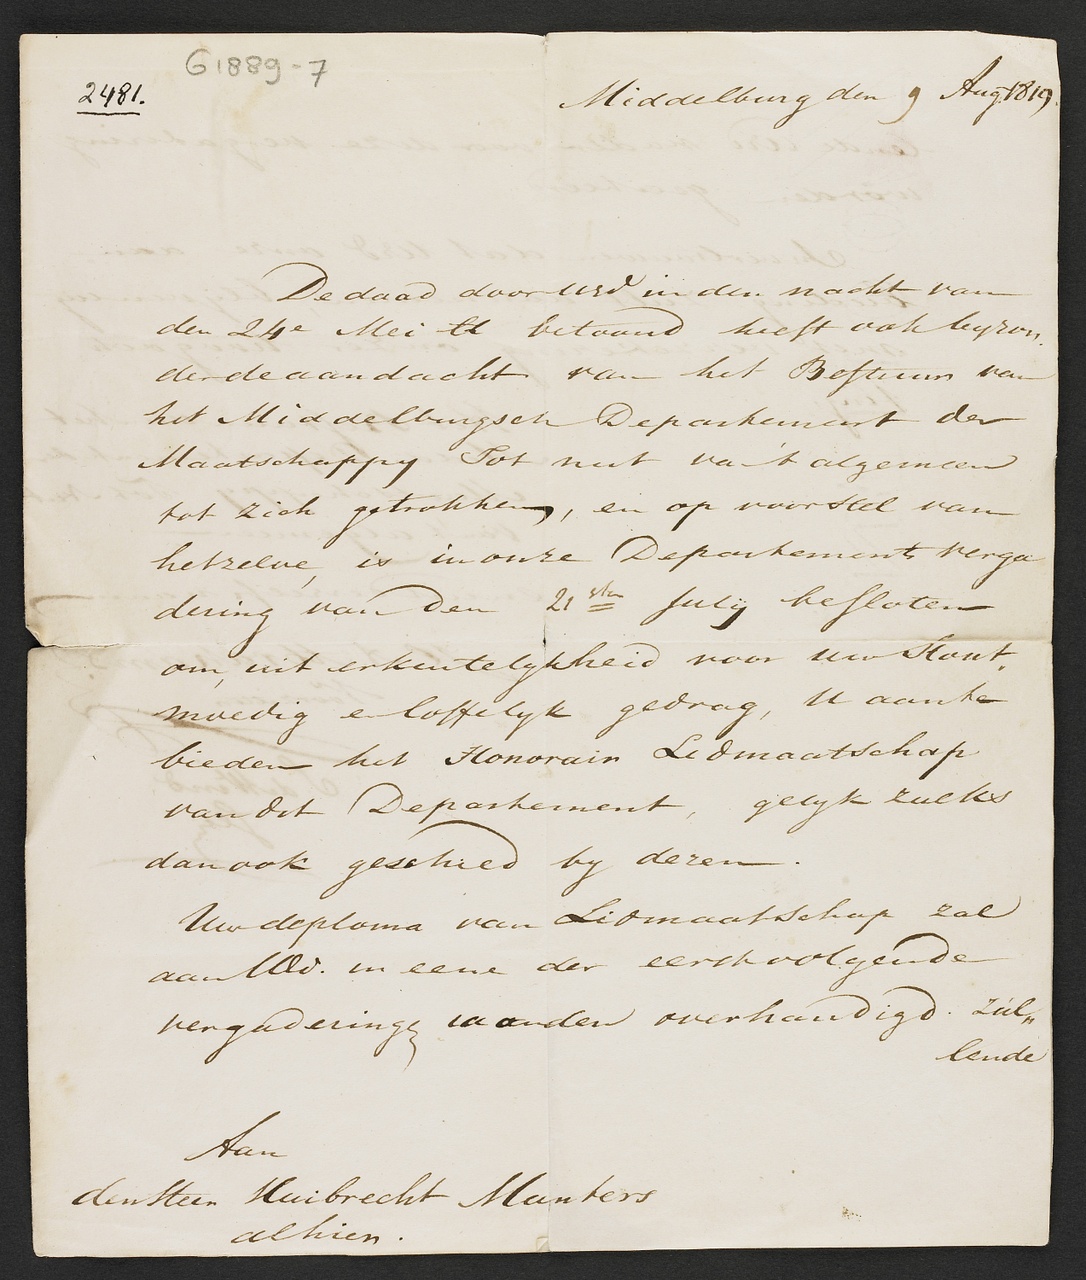 G1889-7
2481.
Middelburg den 9 Aug 1819
De daad door UEd in den nacht van
den 24e Mei ll betoond heeft ook byzon,
dere de aandacht van het Bestuur van
het Middelburgsch Departement der
Maatschappy Tot nut van 't algemeen
tot zich getrokken, en op voorstel van
hetzelve, is in onze Departements verga
dering van den 21sten July besloten
om, uit erkentelykheid voor uw Stout,
moedig en loffelyk gedrag, U aante
bieden het Honorair Lidmaatschap
van dit Departement, gelyk zulks
dan ook geschied by dezen.
Uw deploma van Lidmaatschap zal
aan UEd. in eene der eerstvolgende
vergadering worden overhandigd. zul„
lende
Aan
den Heer Huibrecht Munters
alhier.